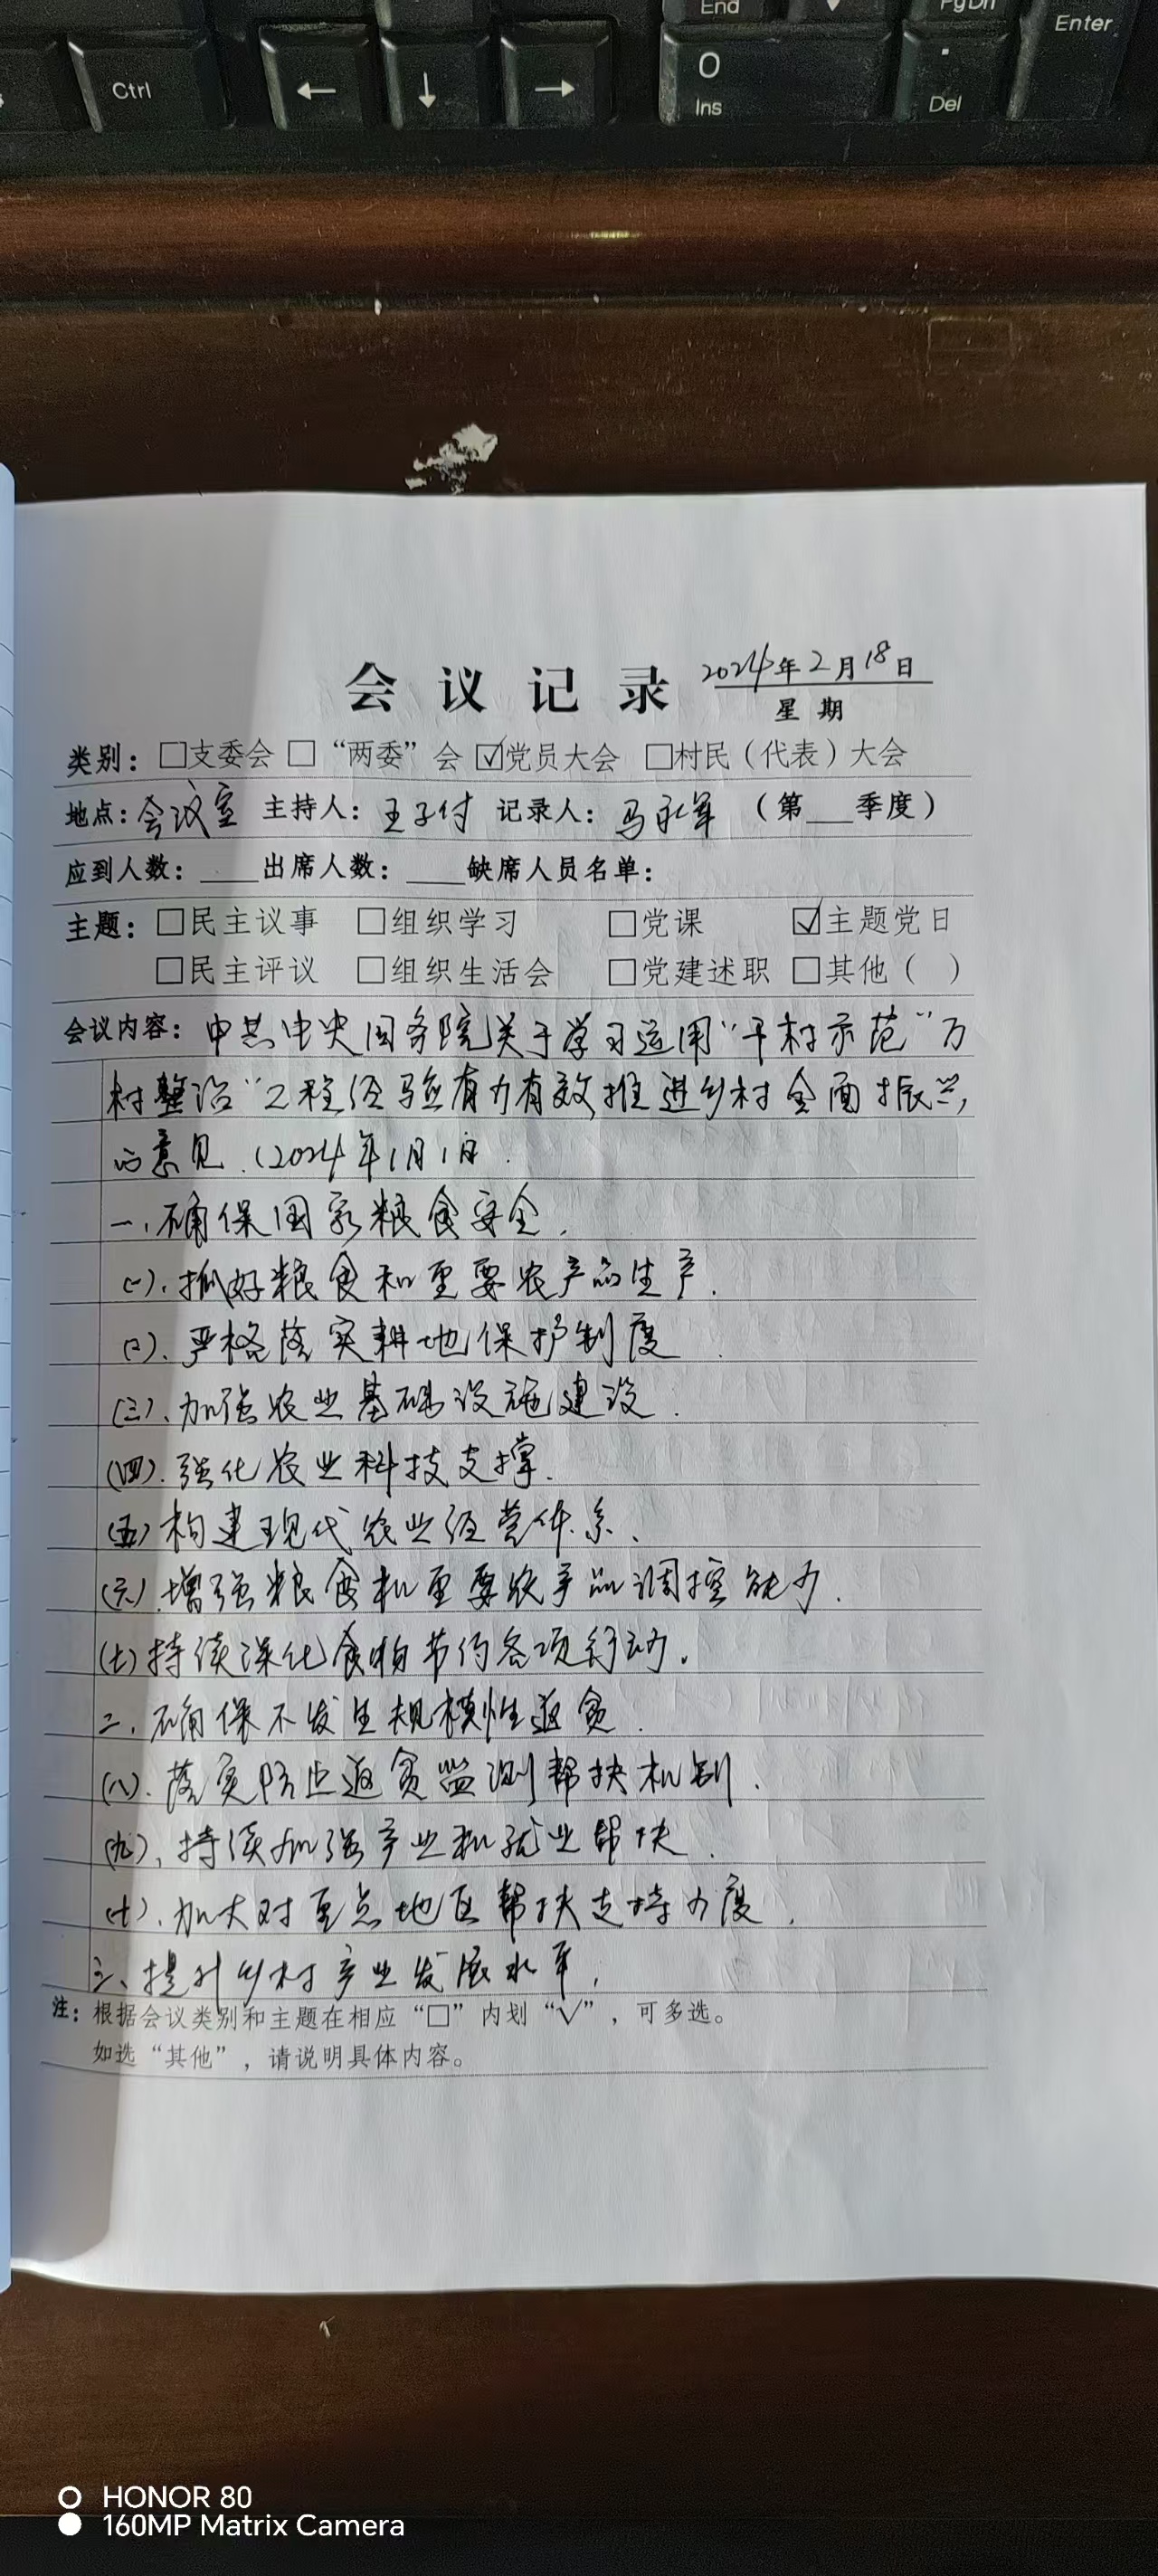 End
PgDn
Enter
Ctrl
←
↓
→
0
Ins
.
Del
会议记录 2024年2月18日
星期
类别：□支委会 □“两委”会 ☑党员大会 □村民（代表）大会
地点：会议室 主持人：王子付 记录人：马永军 （第___季度）
应到人数：____出席人数：____缺席人员名单：
主题：□民主议事 □组织学习 □党课 ☑主题党日
□民主评议 □组织生活会 □党建述职 □其他（ ）
会议内容：中共中央国务院关于学习运用“千村示范“万
村整治“工程经验有力有效推进乡村全面振兴，
的意见.（2024年1月1日.
一、确保国家粮食安全.
(一).抓好粮食和重要农产品生产.
(二).严格落实耕地保护制度.
(三).加强农业基础设施建设.
(四).强化农业科技支撑.
(五)构建现代农业经营体系.
(六).增强粮食和重要农产品调控能力.
(七)持续深化食物节约各项行动.
二、确保不发生规模性返贫.
(八).落实防止返贫监测帮扶机制.
(九)、持续加强产业和就业帮扶.
(十)、加大对重点地区帮扶支持力度.
三、提升乡村产业发展水平.
注：根据会议类别和主题在相应“□”内划“√”，可多选。
如选“其他”，请说明具体内容。
HONOR 80
160MP Matrix Camera